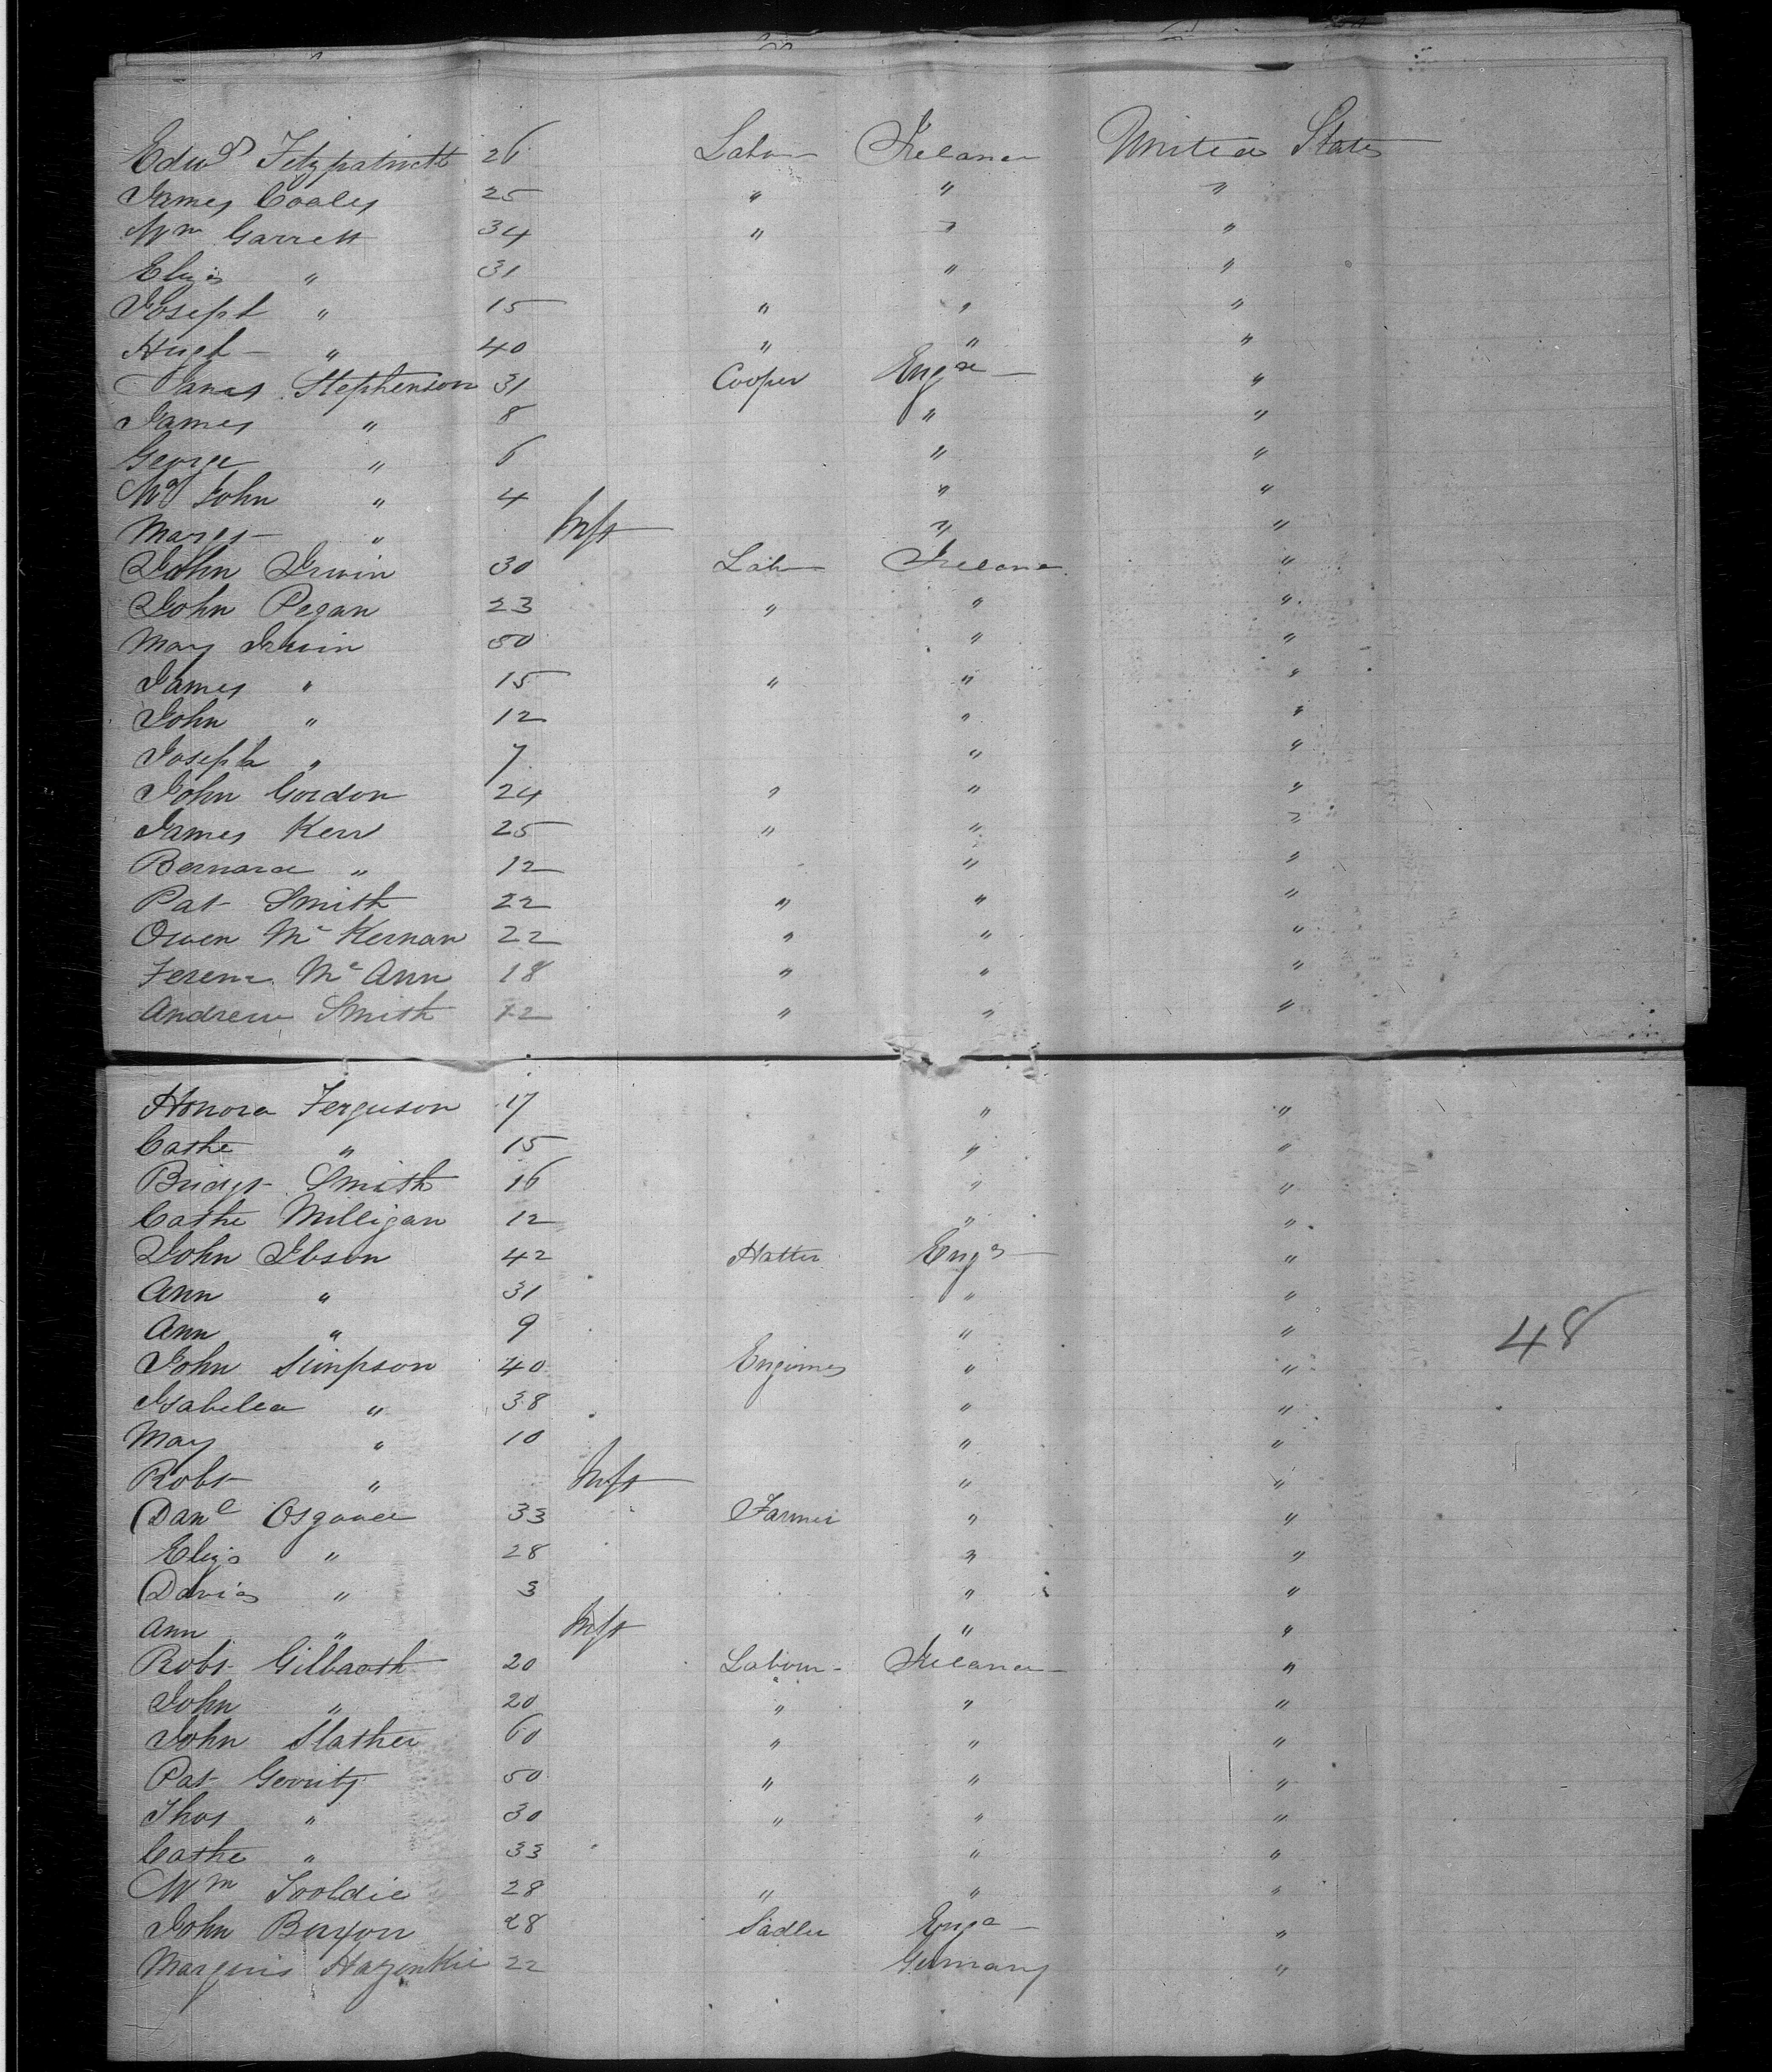 Edwd Fitzpatrick 26 Labor Ireland United States
James Coaley 25 " " "
Wm Garrett 34 " " "
Eliza " 31 " "
Joseph " 15 " " "
Hugh " 40 " " "
James Stephenson 31 Cooper Engd "
James " 8 " "
George " 6 " "
Wm John " 4 " "
Margt " Inft " "
John Irwin 30 Labr Ireland "
John Pegan 23 " " "
Mary Irwin 50 " "
James " 15 " " "
John " 12 " "
Joseph " 7 " "
John Gordon 24 " " "
James Kerr 25 " " "
Bernard " 12 " "
Pat Smith 22 " " "
Owen Mc Kernan 22 " " "
Mc Ann 18 " " "
Andrew Smith 12 " " "
Honora Ferguson 17 " "
Cathe " 15 " "
Bridgt Smith 16 " "
Cathe Milligan 12 " "
John Ibson 42 Hatter Engd "
Ann " 31 " "
Ann " 9 " "
48
John Simpson 40 Engineer " "
Isabella " 38 " "
Mary " 10 " "
Robt " Inft " "
Danl Osgood 33 Farmer " "
Eliza " 28 " "
David " 3 " "
Ann " Inft " "
Robt Gilbaoth 20 Labour Ireland "
John " 20 " " "
John Slather 60 " " "
Pat Gerrity 50 " " "
Thos " 30 " " "
Cathe " 33 " "
Wm Tooldie 28 " " "
John Buxon 28 Sadler Engd "
Marquis 22 Germany "